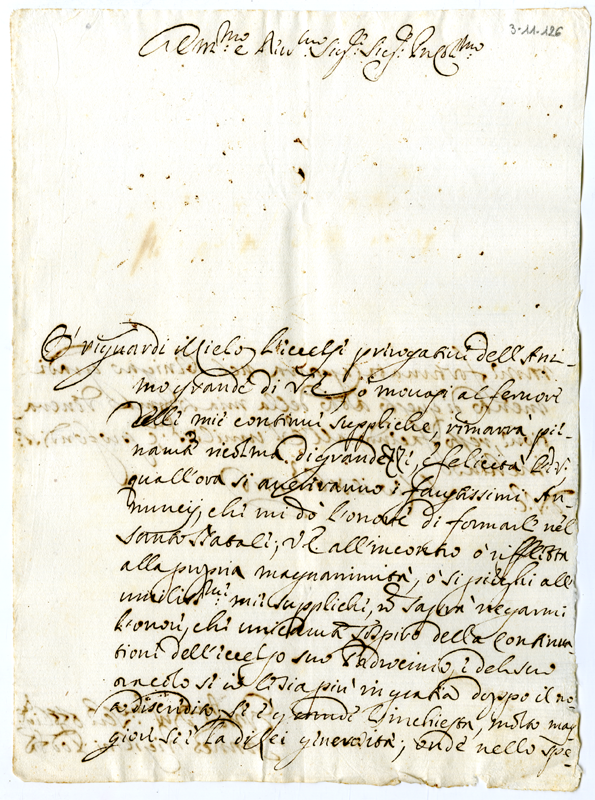 3.11.126
Em.mo e Rev.mo Sig.r Sig.r
O' riguardi il Cielo l'eccelse prerogative dell'Ani-
mo grande di V.E. ò movasi al fervore
delle mie continue suppliche, rimarrà pie-
namte ricolma di grandezze, e felicità
quall'ora si avereranno i faustissimi An-
nuncij, che mi dò l'onore di formarle nel
Santo Natale; V.E. all'incontro ò rifletta
alla propria magnanimità, ò si pieghi alle
umiliss.me mie suppliche, nō saprà negarmi
l'onore, che unicamte sospiro della continua-
tione dell'eccelso suo Padrocinio, e del suo
più in grata dopo il
si l'inchiesta, molto mag-
gior si è la di Lei generosità; onde nello spe-